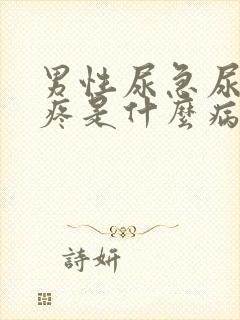 男性尿急尿
疼是什麼病
詩妍